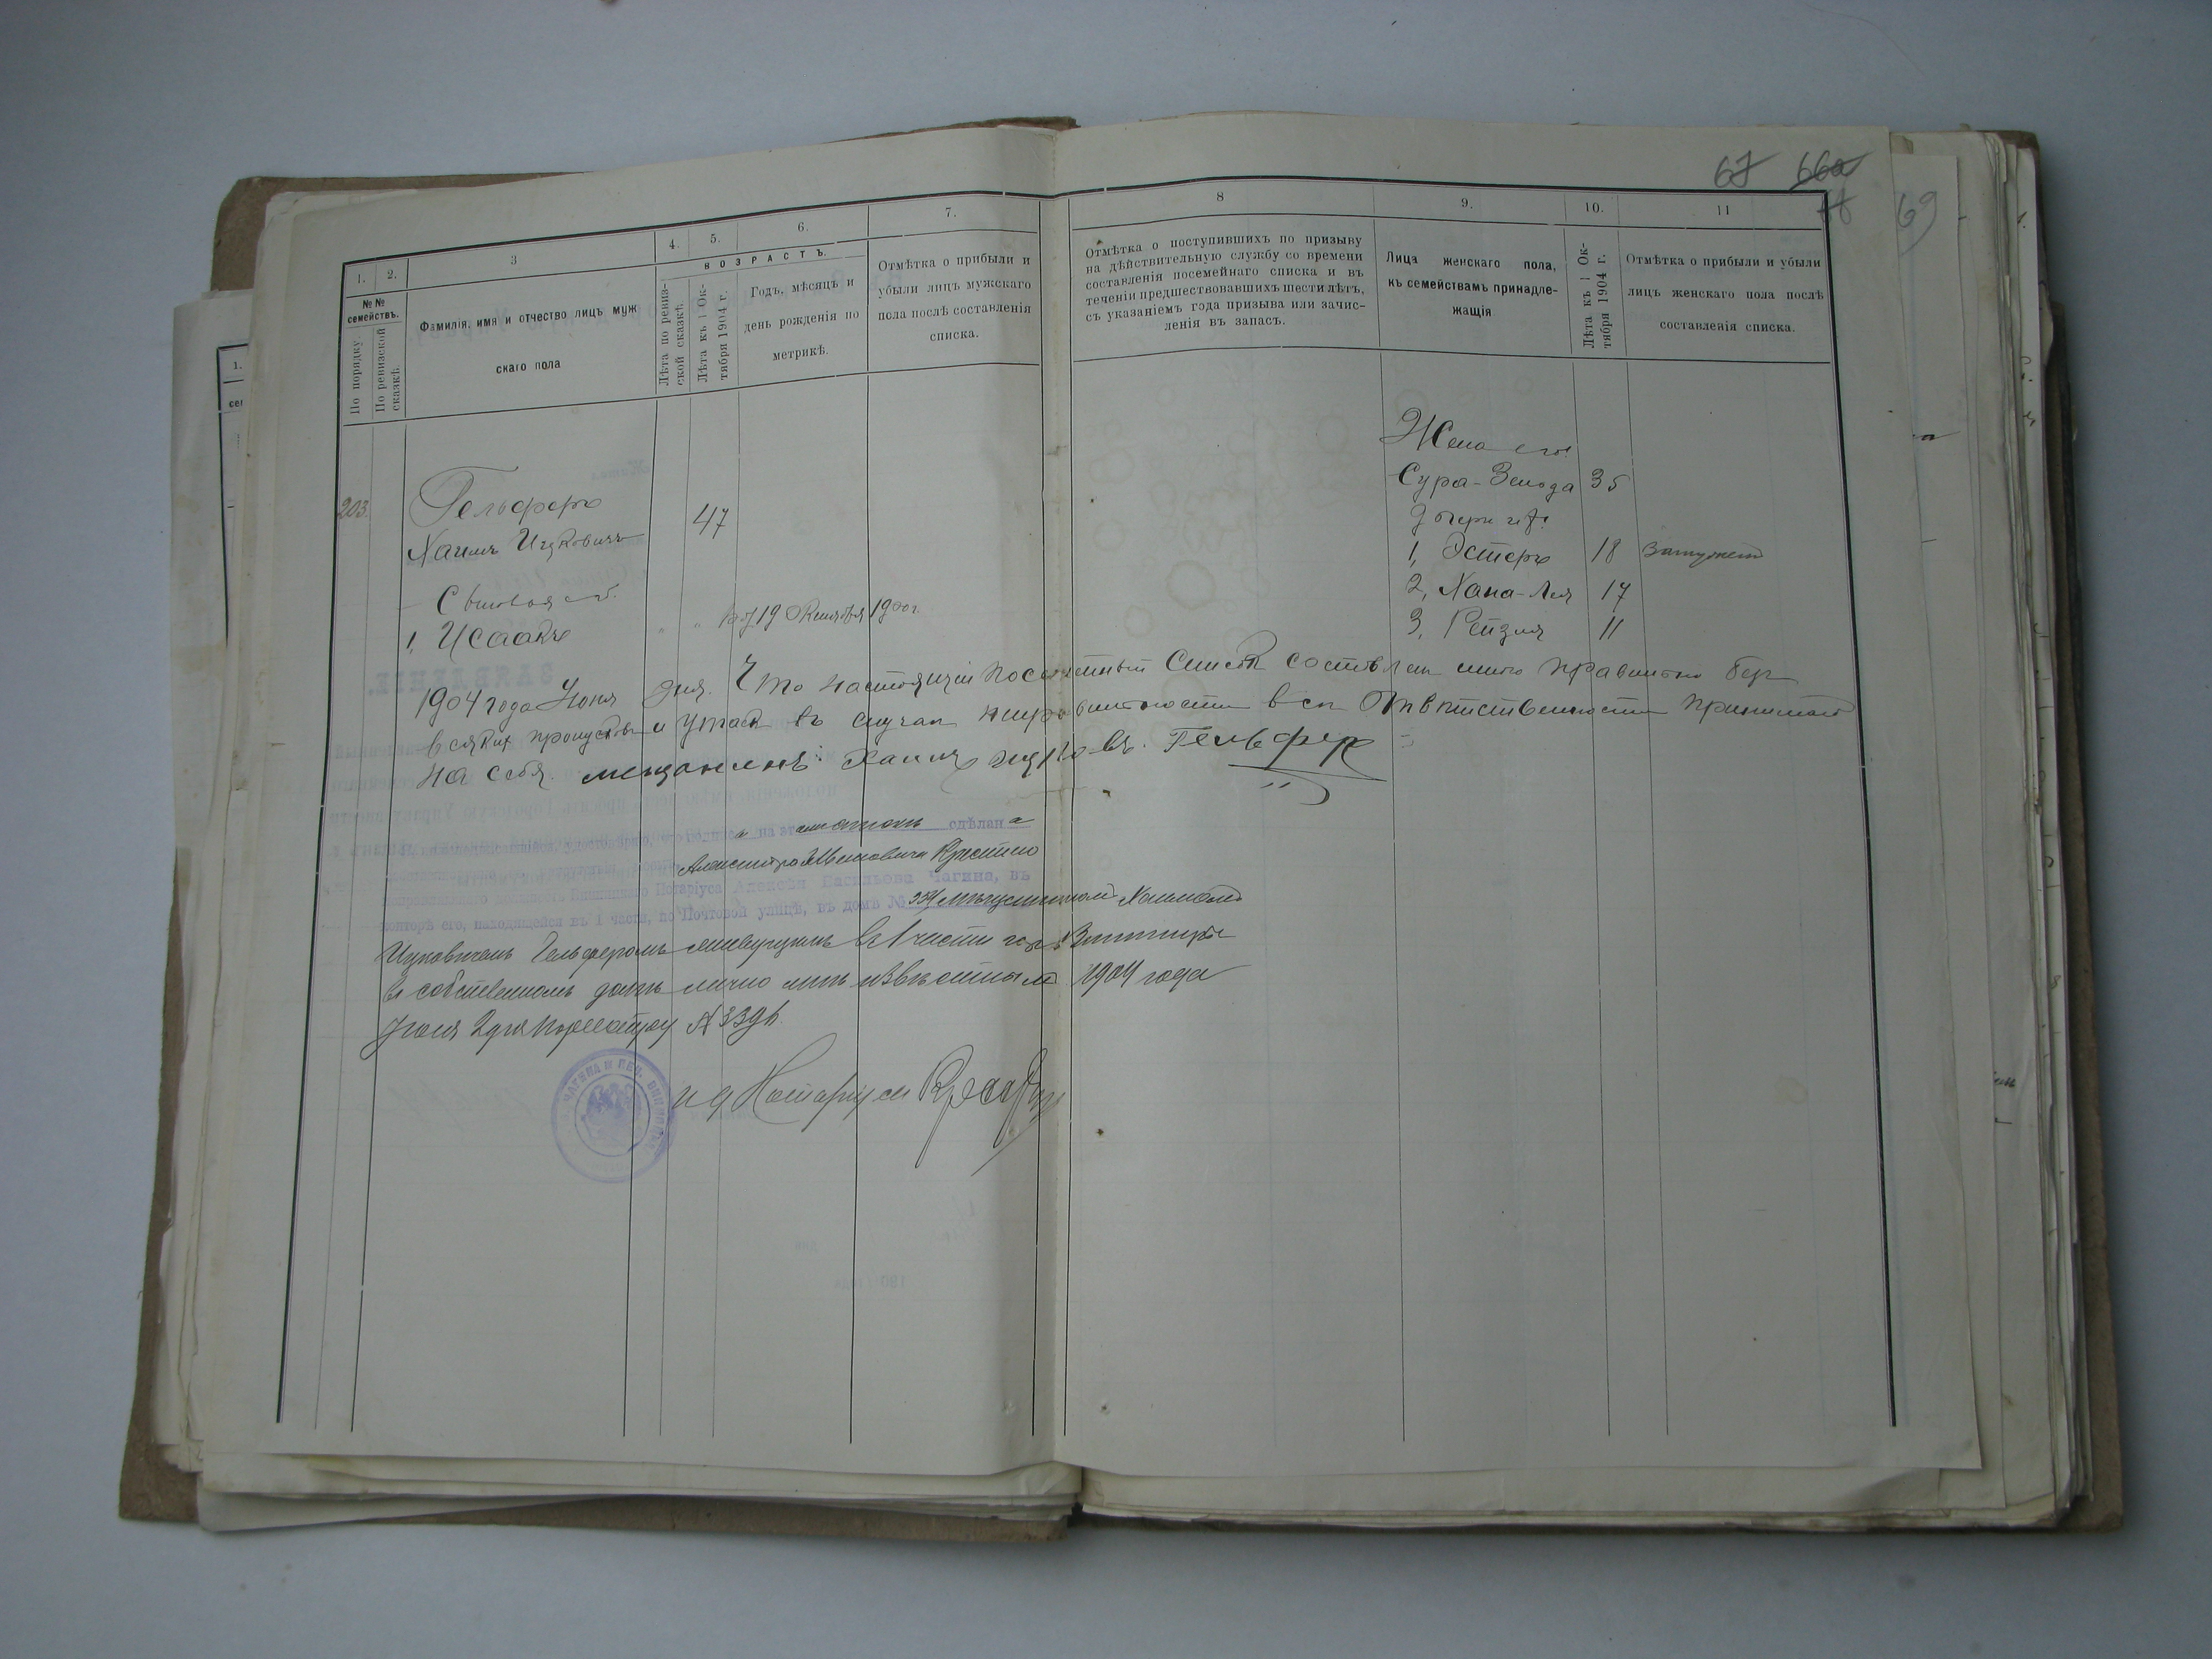 67 66а
69
1. 2. 3 4. 5. 6. 7. 8 9. 10. 11
№ № семействъ.
По порядку
По ревизской сказкѣ.
Фамилія, имя и отчество лицъ муж
скаго пола
ВОЗРАСТЪ.
Лѣта по ревиз-
ской сказкѣ.
Лѣта къ 1 Ок-
тября 1904 г.
Годъ, мѣсяцъ и
день рожденія по
метрикѣ.
Отмѣтка о прибыли и
убыли лицъ мужскаго
пола послѣ составленія
списка.
Отмѣтка о поступившихъ по призыву
на дѣйствительную службу со времени
составленія посемейнаго списка и въ
теченіи предшествовавшихъ шести лѣтъ,
съ указаніемъ года призыва или зачис-
ленія въ запасъ.
Лица женскаго пола,
къ семействамъ принадле-
жащія
Лѣта къ 1 Ок-
тября 1904 г.
Отмѣтка о прибыли и убыли
лицъ женскаго пола послѣ
составленія списка.
Жена его
203. Гельферъ
Сура- 35
Хаимъ Ицковичъ 47
Дочери их:
1, Эстеръ 18 замужем
Сыновья его.
2, Хана-Лея 17
1, Исаакъ " " 19 Октября 1900 г.
3, Рейзля 11
1904 года Июня дня. Что настоящій посемейный Списокъ составлен мною правильно без
всяких пропусков и утаек въ случаи неправильности вся Отвѣтственность принимаю
на себя. мещанинъ Хаимъ Ицковъ. Гельфер
на этом сдѣлана
Нотаріуса Алексѣя Васильева Чагина, въ
конторѣ его, находящейся въ 1 части, по Почтовой улицѣ, въ домѣ № мѣщаниномъ Хаимомъ
Ицковичемъ Гельферомъ живущимъ въ 1 части гор. Винницы
въ собственномъ домѣ лично мнѣ извѣстнымъ 1904 года
Июня 2 дня По реестру №
и д Нотаріуса